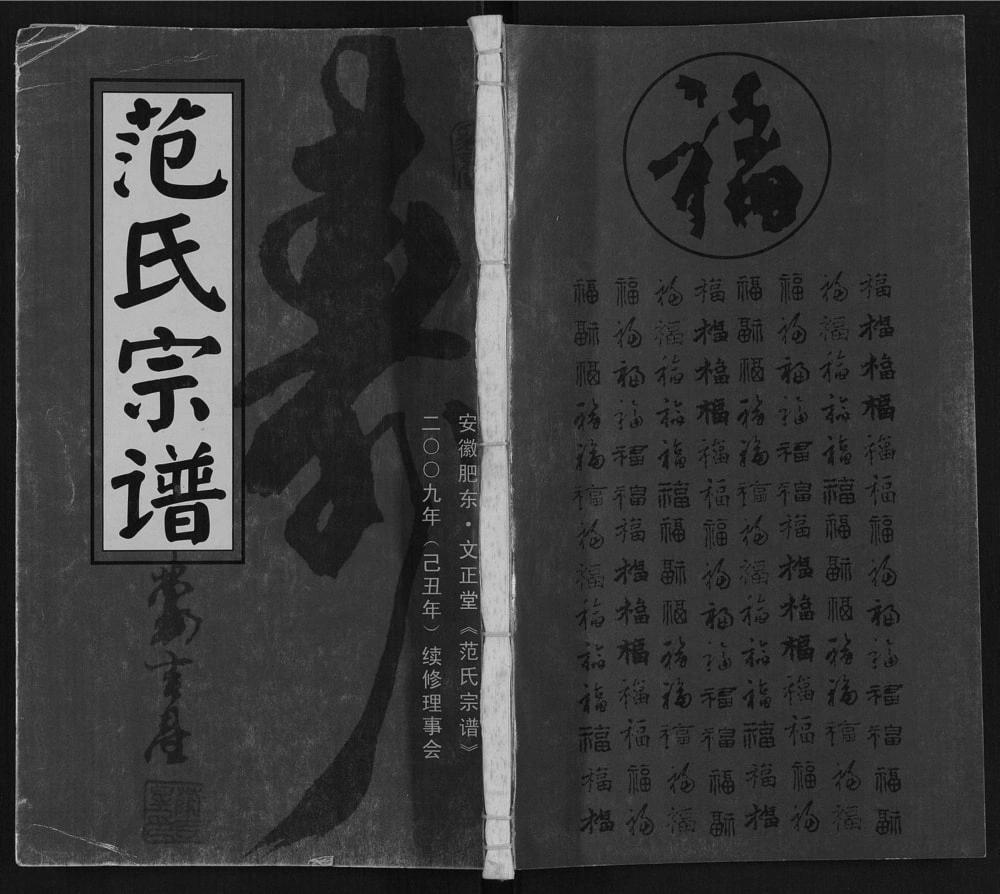 范氏宗谱
寿
安徽肥东·文正堂《范氏宗谱》
二〇〇九年（己丑年）续修理事会
福
福福福福福福福福
福福福福福福福福
福福福福福福福福
福福福福福福福福
福福福福福福福福
福福福福福福福福
福福福福福福福福
福福福福福福福福
福福福福福福福福
福福福福福福福福
福福福福福福福福
福福福福福福福福
福福福福福福福福
福福福福福福福福